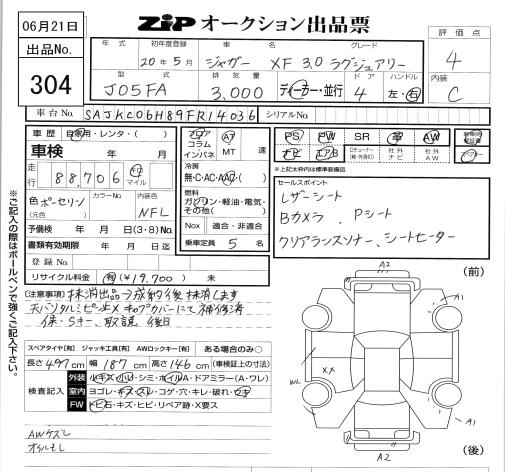 06月21日
出品No.
304
ZIP オークション出品票
評価点
4
内装
C
年式 初年度登録 車名 グレード
20年5月 ジャガー XF 3.0 ラグジュアリー
型式 排気量 ドア ハンドル
J05FA 3,000 ディーラー・並行 4 左・右
車台No. SAJKC06H89FR14036 シリアルNo.
車歴 自家用・レンタ・( )
車検 年 月
走行 88,706 キロ マイル
色 ポーセリン カラーNo. 内装色 NFL
(元色)
予備検 年 月 日(3・8)No.
書類有効期限 年 月 日迄
登録No.
リサイクル料金 有 ¥19,700 未
フロア コラム インパネ AT MT 速
冷房
無・C・AC・AAC・( )
燃料
ガソリン・軽油・電気・その他( )
Nox 適合・非適合
乗車定員 5 名
PS PW SR 革 AW
ナビ エアB Dチューナー 社外ナビ 社外AW
*上記太枠内は標準装備品
セールスポイント
レザーシート
Bカメラ、Pシート
クリアランスソナー、シートヒーター
(注意事項) 抹消出品→成約後抹消します
保・Sキー、取説 後日
スペアタイヤ[有] ジャッキ工具[有] AWロックキー[有] ある場合のみ○
長さ 497cm 幅 187cm 高さ 146cm (車検証上の寸法)
検査記入
外装 小キズ・小凹・シミ・ホイルA・ドアミラー(A・ワレ)
室内 ヨゴレ・キズ・スレ・コゲ・穴・キレ・破れ・ウキ
FW トビ石・キズ・ヒビ・リペア跡・X要ス
AWケズレ
オイルモレ
※ご記入の際はボールペンで強くご記入下さい。
(前)
A2
A1
XX
A1
A2
(後)